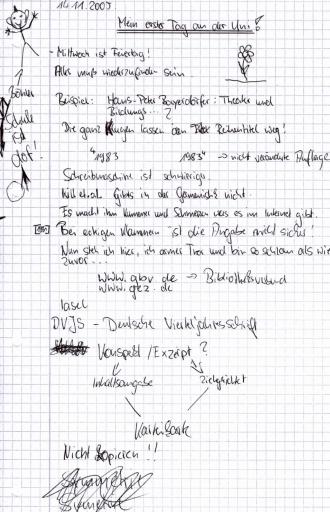 14.11.2005
Mein erster Tag an der Uni!
- Mittwoch ist Feiertag!
Alles muß wiederzufinden sein
Beispiel: Hans-Peter : Theater und
Bildungs...?
Die ganz klugen lassen den Reihentitel weg!
"1983 1983" → nicht veränderte Auflage
Schreibmaschine ist schwierig.
et.al. gibts in der Germanistik nicht.
Es macht ihm Kummer und Schmerzen was es im Internet gibt.
Bei eckigen Klammern ist die Angabe nicht sicher!
Nun steh ich hier, ich armer Tor und bin so schlau als wie
zuvor...
www.gbv.de → Bibliotheksverbund
www.gez.de
lasel
DVJS - Deutsche Vierteljahresschrift
Konspekt / Exzerpt?
Inhaltsangabe Zielgerichtet
Karteikarte
Nicht kopieren!!
Schule
ist
doof!